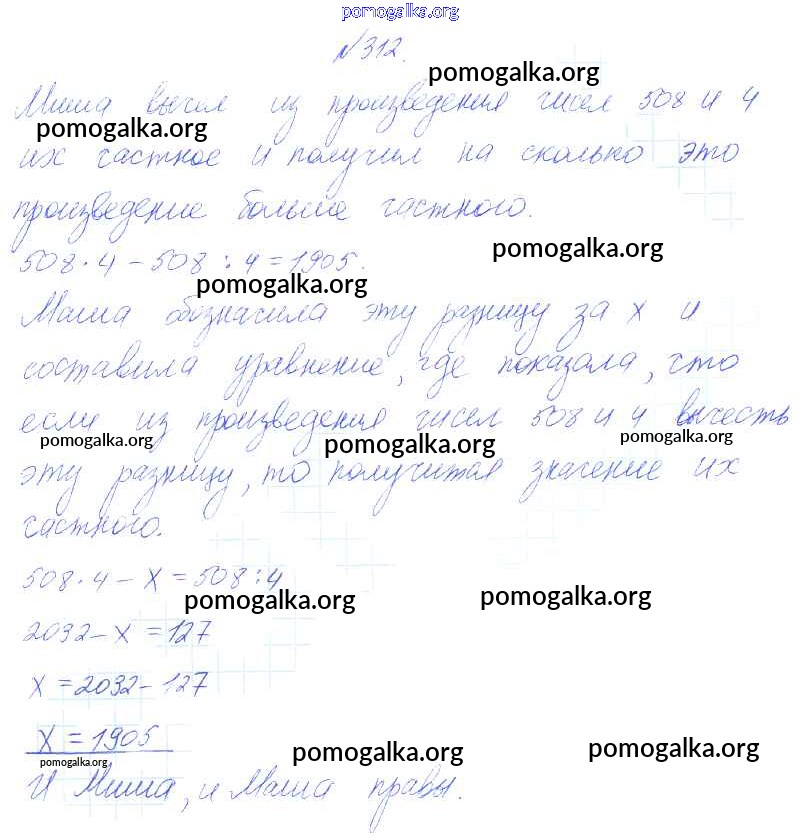 pomogalka.org
№312.
pomogalka.org
Миша вычел из произведения чисел 508 и 4
pomogalka.org
их частное и получил на сколько это
произведение больше частного.
pomogalka.org
508·4-508:4=1905.
pomogalka.org
Маша обозначила эту разницу за x и
составила уравнение, где показала, что
если из произведения чисел 508 и 4 вычесть
pomogalka.org pomogalka.org pomogalka.org
эту разницу, то получится значение их
частного.
508·4-x=508:4
pomogalka.org pomogalka.org
2032-x=127
x=2032-127
x=1905
pomogalka.org pomogalka.org pomogalka.org
И Миша, и Маша правы.